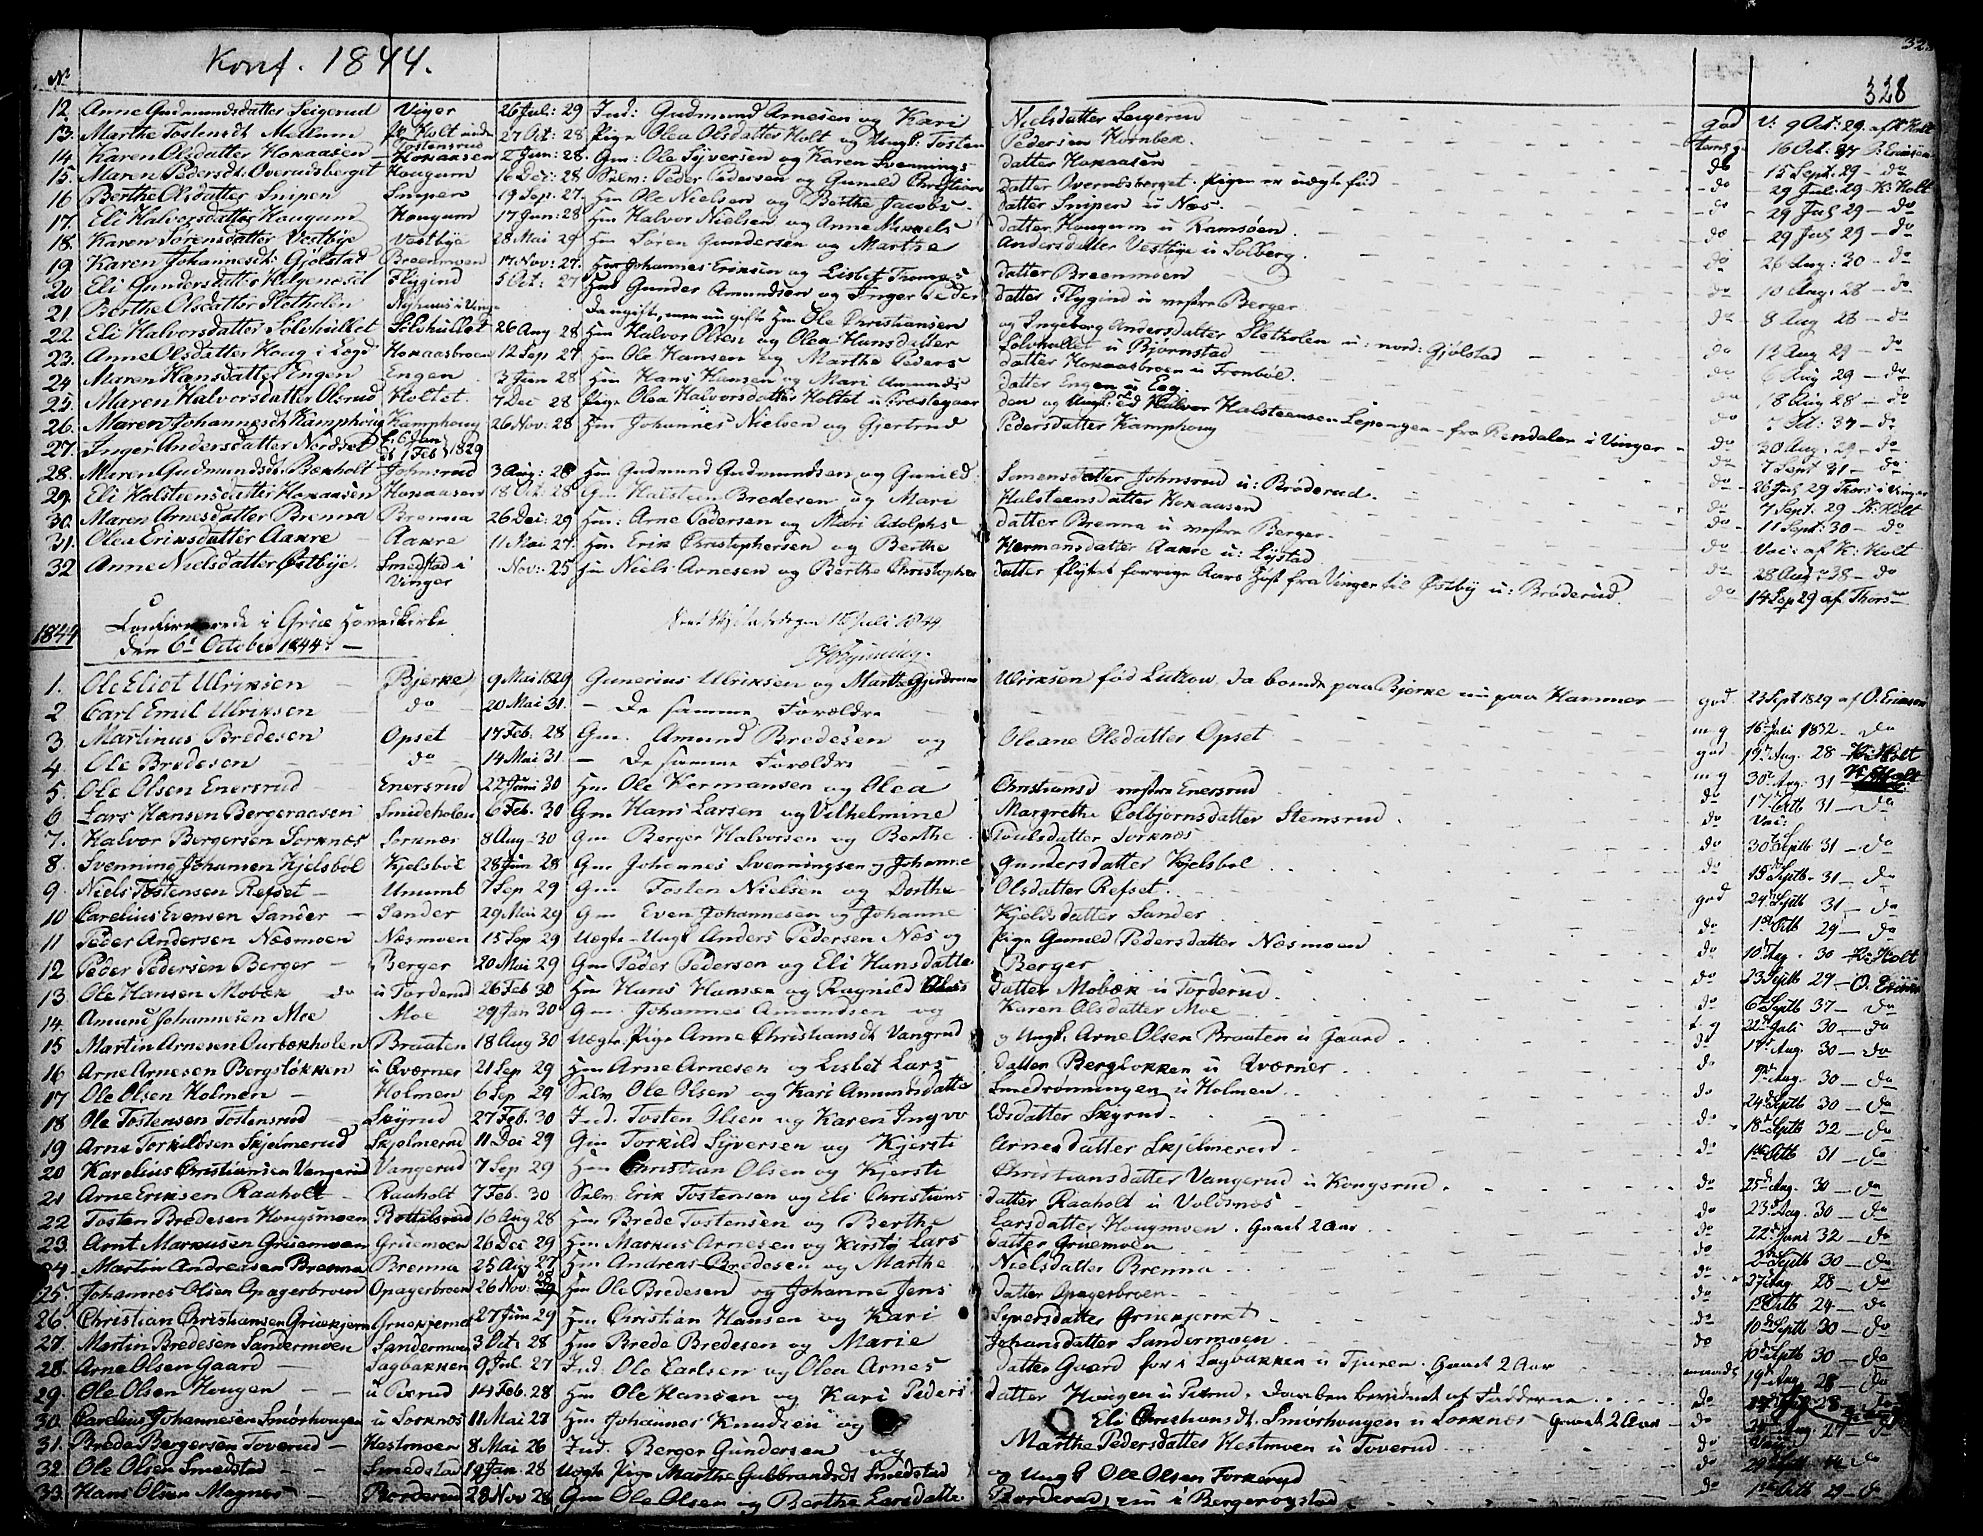 Konf. 1844.
328
No
12. Anne Gudmundsdatter Seigerud Viger 26 Jul: 29 Ind: Gudmund Arnesen og Kari Nielsdatter Seigerud god V: 9 Oct: 29. af K. Holt
13. Marthe Tostensdt Mellem Holt under Tostensrud 27 Oct: 28 Pige Olea Olsdatter Holt og Ungk: Tosten Pedersen Kornbek. 16 Oct:
14. Karen Olsdatter Hokaasen Hokaasen 2 Jun: 28. Gm: Ole Syversen og Karen Svennings datter Hokaasen do 15 Sept. 29 do
15. Maren Pedersdt. Overudsberget Hougum 16 Dec: 28 Selv: Peder Pedersen og Gunild Christians datter Overudsberget. Pigen er uægte fød do 29 Jul: 29 K: Holt
16 Berthe Olsdatter Snipen Snipen 19 Sep. 27. Hm Ole Nielsen og Berthe Jacobs datter Snipen u Næs. do 29 Jul 29 do
17. Eli Halvorsdatter Hougum Hougum 17 Jun: 28 Hm Halvor Nielsen og Anne Mikkels datter Hougum u Ramsöen. do 29 Jul 29 do
18. Karen Sörensdatter Vestbye Vestbye 28 Mai 29 Hm Sören Gundersen og Marthe Andersdatter Vestbye u Solberg. do 26 Aug: 30 do
19 Karen Johannesdt: Gjölstad Breenmoen 17 Nov: 27. Hm Johannes Eriksen og Lisbet Thomas datter Breenmoen do 10 Aug: 28 do
20 Eli Gundersdatter Helgeneset Flygind 5 Oct: 27 Hm Gunder Amundsen og Inger Peders datter Flygind u vestre Berger do 8 Aug 28 do
21 Berthe Olsdatter Slotholen Da ugift, men nu gifte Hm Ole Christiansen og Ingeborg Andersdatter Slotholen u: nord: Gjölstad do 12 Aug 29 do
22. Eli Halvorsdatter Solshullet Solshullet 26 Aug 28 Hm Halvor Olsen og Olea Hansdatter Solshullet u Björnstad do 6 Aug 29 do
23. Anne Olsdatter Houg i Lægd Hokaasbroen 12 Sep 27 Hm Ole Hansen og Marthe Peders datter Hokaasbroen u Tronböl. do 18 Aug 28 do
24 Maren Hansdatter Engen Engen 3 Jun 28 Hm Hans Hansen og Mari Amunds datter Engen u Eeg.
25. Maren Halvorsdatter Olsrud Holtet 7 Dec 28 Pige Olea Halvorsdatter Holtet u Prestegaar den og Ungk: Halvor Halsteensen Lepengen fra Rendalen i Vinger do 30 Aug: 29 do
26. Maren Johannesdt Kamphoug Kamphoug 26 Nov: 28 Hm Johannes Nielsen og Gjertrud Pedersdatter Kamphoug do 7 Sept 31 do
27. Inger Andersdatter Nordset 1829
28. Maren Gudmundsdt. Bækholt Johnsrud 3 Aug: 28 Hm Gudmund Gudmundsen og Gunild Simensdatter Johnsrud u: Bröderud. do 26 Jul 29 Thors i Vinger
29. Eli Halsteensdatter Hokaasen Hokaasen 18 Oct: 28 Gm Halsteen Bredesen og Mari Halsteensdatter Hokaasen do 7 Sept. 29 K: Holt
30. Maren Arnesdatter Brenna Brenna 26 Dec: 29 Hm: Arne Pedersen og Mari Adolphs datter Brenna u vestre Berger. do 11 Sept: 30 do
31. Olea Eriksdatter Aakre Aakre 11 Mai 27. Hm Erik Christophersen og Berthe Hermansdatter Aakre u: Lystad do Vac: af K: Holt
32 Anne Nielsdatter Östbye. Smedstad i Vinger Nov: 25 Hm Niels Arnesen og Berthe Christopher datter flyttet forrige Aars Höst fra Vinger til Östby u: Bröderud. do 14 Sep 29 af Thors
1844 Confirmerede i Grue Hovedkirke
den 6te October 1844.
1. Ole Eliot Ulriksen Bjerke 9 Mai 1829 Gunerius Ulriksen og Marthe Gjerdrum Ulriksen fød Lutkow. Da boende paa Bjerke nu paa Hammer god 23 Sept 1829 af O. Eriksen
2 Carl Emil Ulriksen do 20 Mai 31. De samme Forældre m g 16 Juli 1832. do
3 Martinus Bredesen Opset 17 Feb. 28 Gm. Amund Bredesen og Oleane Olsdatter Opset god 19 Aug. 28 K: Holt
4. Ole Bredesen do 14 Mai 31 De samme Forældre m g 30 Aug. 31 K. Holt
5 Ole Olsen Enersrud Enersrud 22 Juni 30 Hm Ole Hermansen og Olea Christiansd vestre Enersrud do 17 Octb 31 do
6 Lars Hansen Bergeraasen Smideholen 6 Feb. 30 Gm Hans Larsen og Vilhelmine Margrethe Colbjörnsdatter Stemsrud. do Vac:
7. Halvor Bergersen Sorknæs Sorknæs 8 Aug. 30 Gm Berger Halvorsen og Berthe Poulsdatter Sorknæs do 30 Septb 31 do
8. Svenning Johansen Kjelsböl Kjelsböl 28 Jun 28 Gm Johannes Svenningsen og Johanne Gundersdatter Kjelsböl do 15 Septb. 31 do
9 Niels Tostensen Refset Unumb 7 Sep 29 Gm Tosten Nielsen og Dorthe Olsdatter Refset. god 24 Septb 31 do
10 Carelius Evensen Sander Sander 29 Mai 29 Gm Even Johannesen og Johanne Kjeldsdatter Sander do 1 Octb 29 do
11 Peder Andersen Næsmoen Næsmoen 15 Sep 29 Uægte Ungk Anders Pedersen Næs og Pige Gunild Pedersdatter Næsmoen do 10 Aug. 30 K: Holt
12 Peder Pedersen Berger Berger 20 Mai 29 Gm Peder Pedersen og Eli Hansdatter Berger do 23 Septb 29 O. Eriksen
13 Ole Hansen Mobæk do u Torderud 26 Feb 30 Hm Hans Hansen og Ragnild Oles datter Mobæk u Torderud. do 6 Septb 37 do
14. Amund Johannesen Moe Moe 29 Jan 30 Gm. Johannes Amundsen og Karen Olsdatter Moe t g 22 Juli 30 do
15 Martin Arnesen Ourbækholen Braaten 18 Aug 30 Uægte Pige Anne Christiansdt Vangrud og Ungk. Arne Olsen Braaten u Gaard. do 17 Aug. 30 do
16 Arne Arnesen Bergslökken u Qværner 21 Sep 29 Hm Arne Arnesen og Lisbet Lars datter Berglokken u Qværner. do 9 Aug. 30 do
17 Ole Olsen Holmen Holmen 6 Sep 29 Selv. Ole Olsen og Kari Amundsdatter Smedrönningen u Holmen. do 24 Septb 30 do
18 Ole Tostensen Tostensrud Skyrud 27 Feb. 30 Ind. Tosten Olsen og Karen Ingvo ldsdatter Skyrud. do 18 Septb 32 do
19 Arne Torkildsen Skjelmerud Skjelmerud 11 Dec 29 Gm Torkild Syversen og Kjersti Arnesdatter Skjelmerud do 1 Octb 31 do
20 Karelius Christiansen Vangerud Vangerud 7 Sep 29 Hm Christian Olsen og Kjersti Christiansdatter Vangerud u Kongsrud. do 25 Aug. 30 do
21 Arne Eriksen Raaholt Raaholt 7 Feb. 30 Selv. Erik Tostensen og Eli Christians datter Raaholt u Voldsnæs do 23 Aug. 30 do
22 Tosten Bredesen Hougsmoen Bottilsrud 16 Aug 28 Hm Brede Tostensen og Berthe Larsdatter Hougmoen. Gaaet 2 Aar do 22 Juni 32 do
23. Arnt Markusen Gruemoen Gruemoen 26 Dec 29 Hm Markus Arnesen og Kirsty Lars datter Gruemoen do Septb 30 do
24. Martin Andreasen Brenna Brenna 25 Aug 27 Hm Andreas Bredesen og Marthe Nielsdatter Brenna do 27 Aug 28 do
25. Johannes Olsen Opagerbroen Opagerbroen 26 Nov. 28 Hm Ole Bredesen og Johanne Jens datter Opagerbroen do 1 Octb 24 do
26. Christian Christiansen Gruekjernet Gruekjernet 27 Jun 29 Hm Christian Hansen og Kari Syversdatter Gruekjernet do 10 Septb 30 do
27. Martin Bredesen Sandermoen Sandermoen 3 Oct. 28 Hm Brede Bredesen og Marie Johansdatter Sandermoen do 10 Septb 30 do
28. Arne Olsen Gaard Sagbakken 9 Jul. 27 Ind. Ole Carlsen og Olea Arnes datter Gaard för i Sagbakken u Tjuren. Gaaet 2 Aar 19 Aug. 28 do
29. Ole Olsen Hougen u Pærud 14 Feb. 28 Hm Ole Hansen og Kari Peders datter Hougen u Perud. Daaben bevidnet af Fadderne do
30. Carelius Johannesen Smörhougen u Sorknæs 11 Mai 27 Hm Johannes Knudsen og Eli Christiansdt. Smörhougen u Sorknæs Gaaet 2 Aar do
31. Brede Bergersen Toverud Hestmoen 8 Mai 26 Ind. Berger Gundersen og Marthe Pedersdatter Hestmoen u Toverud do
32. Ole Olsen Smedstad Smedstad 19 Jan. 28 Uægte Pige Marthe Gulbrandsdt Smedstad og Ungk Ole Olsen Forkerud do
33. Hans Olsen Magnes Borderud 28 Nov 28 Gm Ole Olsen og Berthe Larsdatter Borderud, nu i Bergerøgstad do 1 Octb 29 do